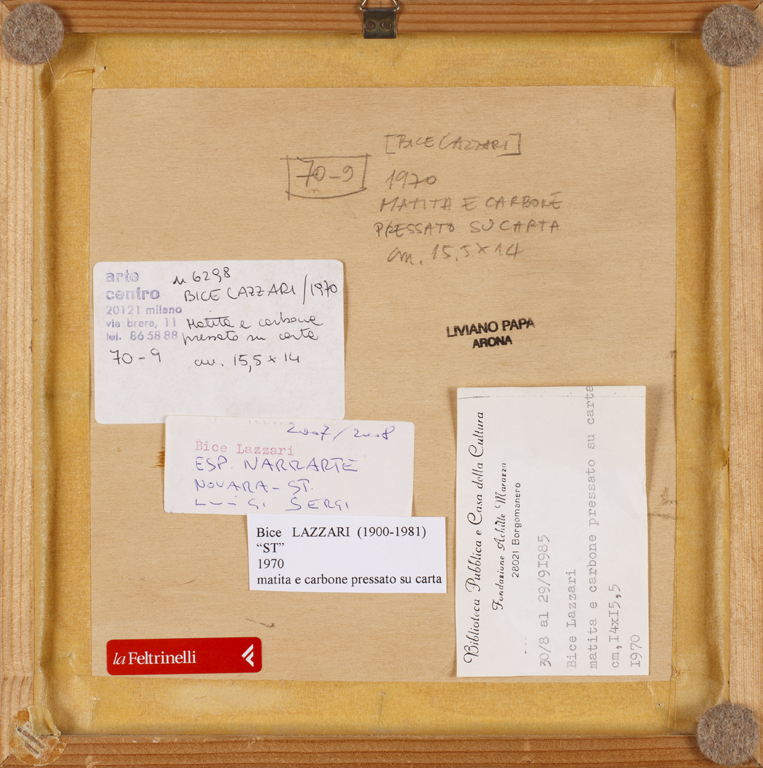 [BICE LAZZARI]
70-9
1970
MATITA E CARBONE
PRESSATO SU CARTA
cm. 15,5 x 14
arte
centro
20121 milano
via brera, 11
tel. 865888
n 6298
BICE LAZZARI / 1970
Matita e carbone
pressato su carta
70-9
cm. 15,5 x 14
LIVIANO PAPA
ARONA
2007/2008
Bice Lazzari
ESP. NARRARTE
NOVARA - ST.
LUIGI SERGI
Bice LAZZARI (1900-1981)
“ST”
1970
matita e carbone pressato su carta
Biblioteca Pubblica e Casa della Cultura
Fondazione Achille Marazza
28021 Borgomanero
30/8 al 29/9I985
Bice Lazzari
matita e carbone pressato su carta
cm,I4xI5,5
I970
la Feltrinelli